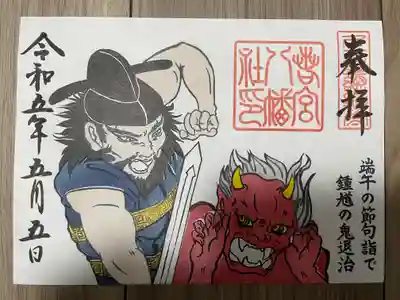 奉拝
若宮
八幡
社印
端午の節句詣で
鍾馗の鬼退治
令和五年五月五日